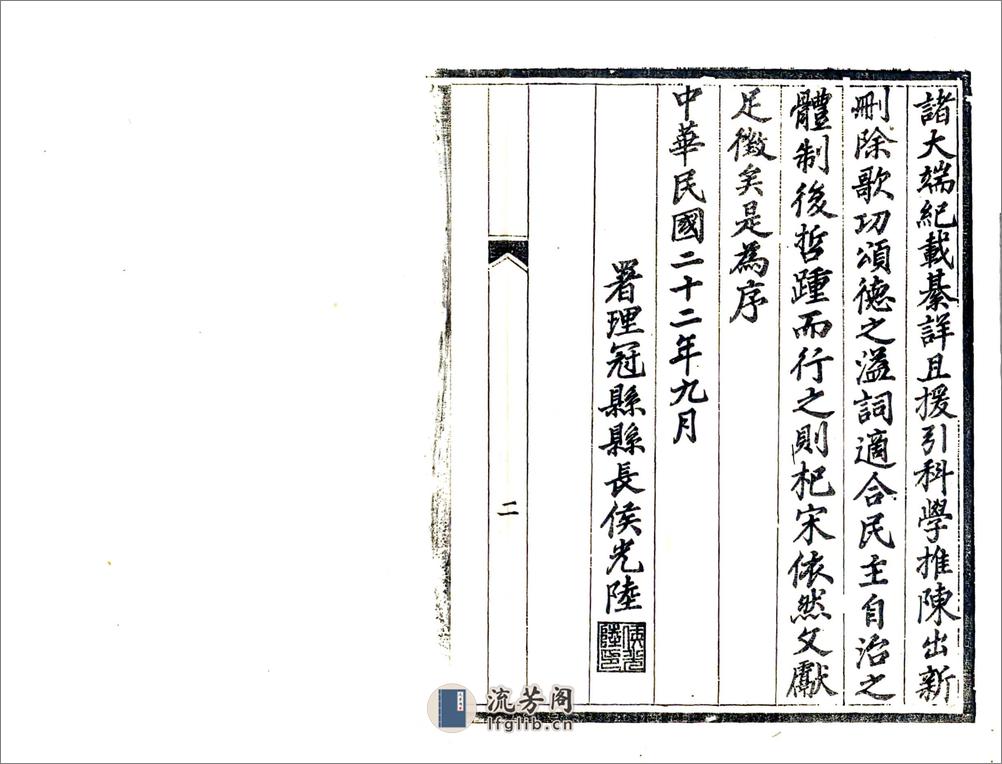 諸大端紀載綦詳且援引科學推陳出新
刪除歌功頌德之溢詞適合民主自治之
體制後哲踵而行之則杞宋依然文獻
足徵矣是為序
中華民國二十二年九月
署理冠縣縣長侯光陸
侯光
陸印
二
流芳阁
lfglib.cn